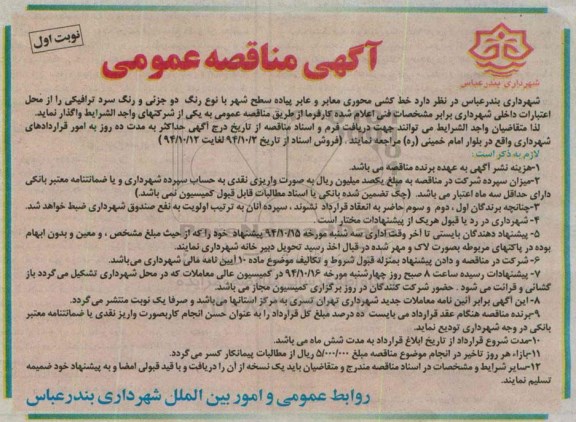 نوبت اول
آگهی مناقصه عمومی
شهرداری بندرعباس
شهرداری بندرعباس در نظر دارد خط کشی محوری معابر و عابر پیاده سطح شهر با نوع رنگ دو جزئی و رنگ سرد ترافیکی را از محل
اعتبارات داخلی شهرداری برابر مشخصات فنی اعلام شده کارفرما از طریق مناقصه عمومی به یکی از شرکتهای واجد الشرایط واگذار نماید.
لذا متقاضیان واجد الشرایط می توانند جهت دریافت فرم و اسناد مناقصه از تاریخ درج آگهی حداکثر به مدت ده روز به امور قراردادهای
شهرداری واقع در بلوار امام خمینی (ره) مراجعه نمایند. (فروش اسناد از تاریخ ۹۴/۱۰/۲ لغایت ۹۴/۱۰/۱۲)
لازم به ذکر است:
۱-هزینه نشر آگهی به عهده برنده مناقصه می باشد.
۲-میزان سپرده شرکت در مناقصه به مبلغ یکصد میلیون ریال به صورت واریزی نقدی به حساب سپرده شهرداری و یا ضمانتنامه معتبر بانکی
دارای حداقل سه ماه اعتبار می باشد. (چک تضمین شده بانکی یا اسناد مطالبات قابل قبول کمیسیون نمی باشد.)
۳-چنانچه برندگان اول ، دوم و سوم حاضر به انعقاد قرارداد نشوند ، سپرده آنان به ترتیب اولویت به نفع صندوق شهرداری ضبط خواهد شد.
۴-شهرداری در رد یا قبول هریک از پیشنهادات مختار است.
۵-پیشنهاد دهندگان بایستی تا آخر وقت اداری سه شنبه مورخه ۹۴/۱۰/۱۵ پیشنهاد خود را که از حیث مبلغ مشخص ، و معین و بدون ابهام
بوده در پاکتهای مربوطه بصورت لاک و مهر شده در قبال اخذ رسید تحویل دبیر خانه شهرداری نمایند.
۶-شرکت در مناقصه و دادن پیشنهاد بمنزله قبول شروط و تکالیف موضوع ماده ۱۰ آیین نامه مالی شهرداری می‌باشد.
۷-پیشنهادات رسیده ساعت ۸ صبح روز چهارشنبه مورخه ۹۴/۱۰/۱۶ در کمیسیون عالی معاملات که در محل شهرداری تشکیل می‌گردد باز
گشائی و قرائت می شود . حضور شرکت کنندگان در روز برگزاری کمیسیون مجاز می باشد.
۸-این آگهی برابر آئین نامه معاملات جدید شهرداری تهران تسری به مرکز استانها می‌باشد و صرفا یک نوبت منتشر می گردد.
۹-برنده مناقصه هنگام عقد قرارداد می بایست ده درصد مبلغ کل قرارداد را به عنوان حسن انجام کاربصورت واریز نقدی یا ضمانتنامه معتبر
بانکی در وجه شهرداری تودیع نماید.
۱۰-مدت شروع قرارداد از تاریخ ابلاغ قرارداد به مدت شش ماه می باشد.
۱۱-بازاء هر روز تاخیر در انجام موضوع مناقصه مبلغ ۵/۰۰۰/۰۰۰ ریال از مطالبات پیمانکار کسر می گردد.
۱۲-سایر شرایط و مشخصات در اسناد مناقصه مندرج و متقاضیان باید یک نسخه از آن را دریافت و با قید قبولی امضا و به پیشنهاد خود ضمیمه
تسلیم نمایند.
روابط عمومی و امور بین الملل شهرداری بندرعباس